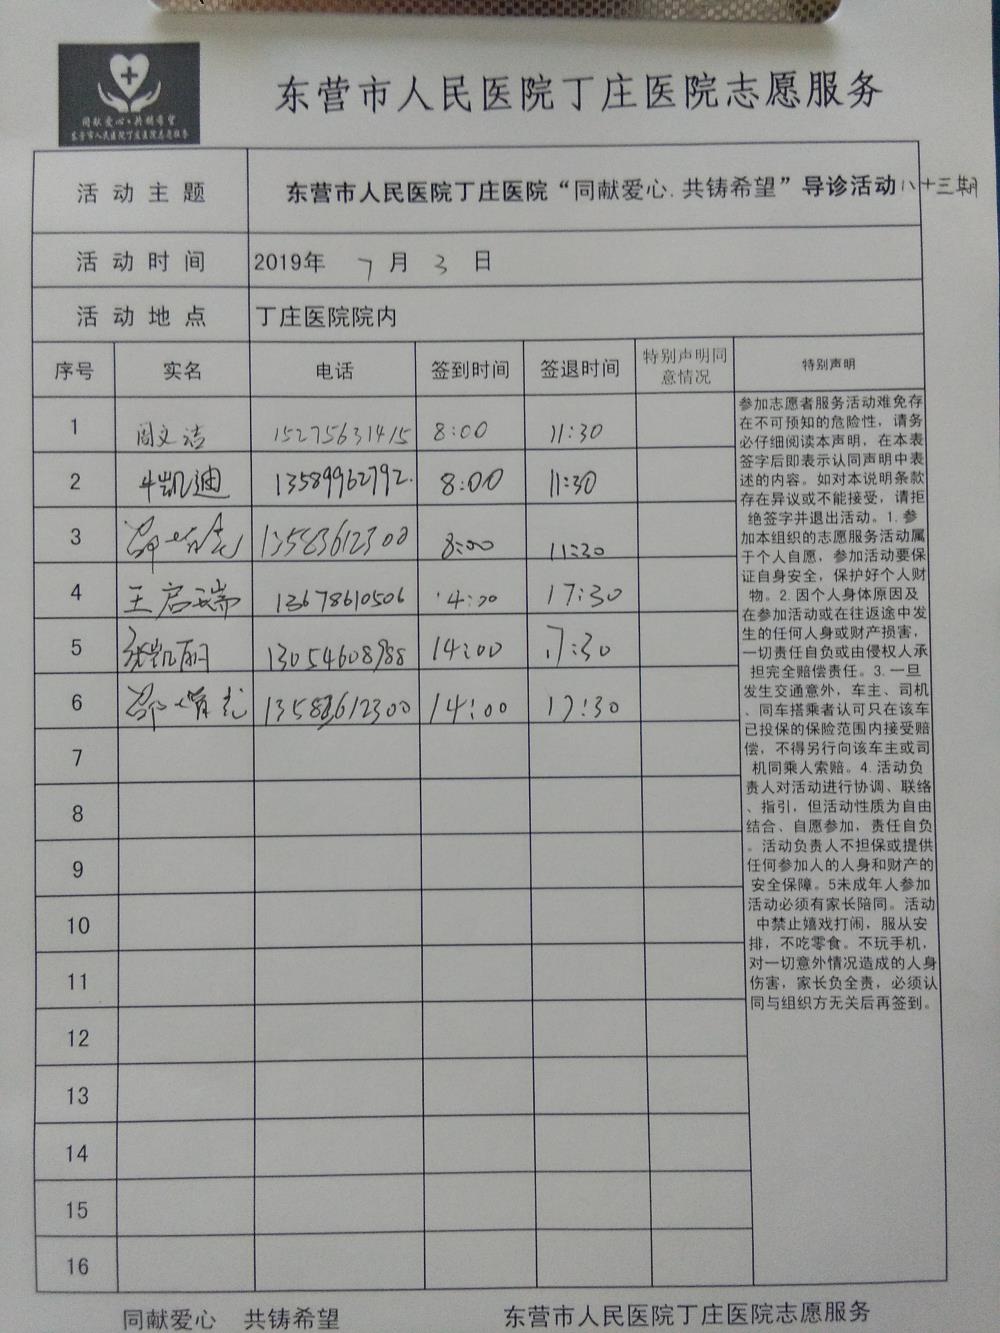 同献爱心·共铸希望
东营市人民医院丁庄医院志愿服务
东营市人民医院丁庄医院志愿服务
活动主题 东营市人民医院丁庄医院“同献爱心.共铸希望”导诊活动八十三期
活动时间 2019年 7 月 3 日
活动地点 丁庄医院院内
序号 实名 电话 签到时间 签退时间 特别声明同意情况 特别声明
1 周文洁 15275631415 8:00 11:30
2 牛凯迪 13589962792 8:00 11:30
3 邵 13583612300 8:00 11:30
4 王启瑞 13678610506 14:00 17:30
5 张凯丽 13054608988 14:00 17:30
6 邵 13583612300 14:00 17:30
7
8
9
10
11
12
13
14
15
16
参加志愿者服务活动难免存
在不可预知的危险性，请务
必仔细阅读本声明，在本表
签字后即表示认同声明中表
述的内容。如对本说明条款
存在异议或不能接受，请拒
绝签字并退出活动。1.参
加本组织的志愿服务活动属
于个人自愿，参加活动要保
证自身安全，保护好个人财
物。2.因个人身体原因及
在参加活动或在往返途中发
生的任何人身或财产损害，
一切责任自负或由侵权人承
担完全赔偿责任。3.一旦
发生交通意外，车主、司机
、同车搭乘者认可只在该车
已投保的保险范围内接受赔
偿，不得另行向该车主或司
机同乘人索赔。4.活动负
责人对活动进行协调、联络
、指引，但活动性质为自由
结合、自愿参加，责任自负
。活动负责人不担保或提供
任何参加人的人身和财产的
安全保障。5未成年人参加
活动必须有家长陪同。活动
中禁止嬉戏打闹，服从安
排，不吃零食。不玩手机，
对一切意外情况造成的人身
伤害，家长负全责，必须认
同与组织方无关后再签到。
同献爱心 共铸希望 东营市人民医院丁庄医院志愿服务